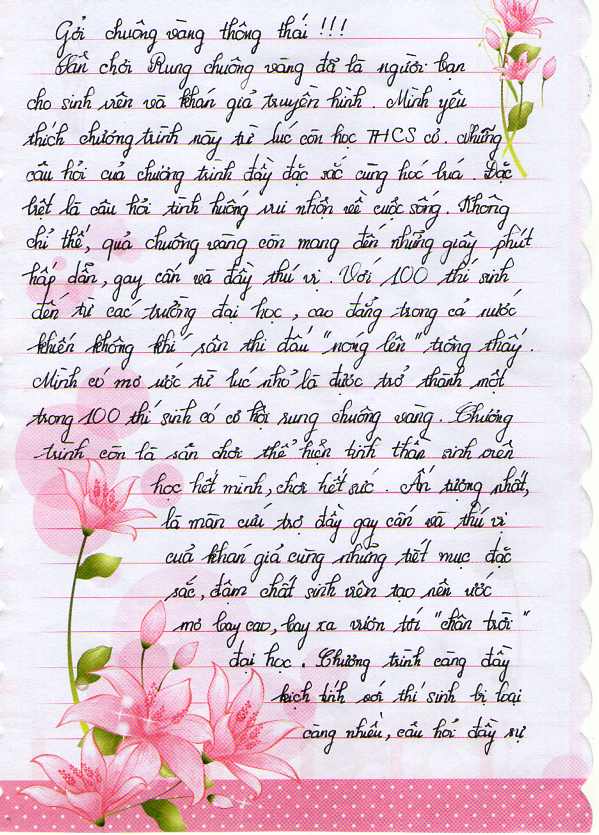 Gởi chuông vàng thông thái !!!
Sân chơi Rung chuông vàng đã là người bạn
cho sinh viên và khán giả truyền hình. Mình yêu
thích chương trình này từ lúc còn học THCS cơ. Những
câu hỏi của chương trình đầy đặc sắc cùng hóc búa. Đặc
biệt là câu hỏi tình huống vui nhộn về cuộc sống. Không
chỉ thế, quả chuông vàng còn mang đến những giây phút
hấp dẫn, gay cấn và đầy thú vị. Với 100 thí sinh
đến từ các trường đại học, cao đẳng trong cả nước
khiến không khí sân thi đấu "nóng lên" trông thấy.
Mình có mơ ước từ lúc nhỏ là được trở thành một
trong 100 thí sinh có cơ hội rung chuông vàng. Chương
trình còn là sân chơi thể hiện tinh thần sinh viên
học hết mình, chơi hết sức. Ấn tượng nhất,
là màn cứu trợ đầy gay cấn và thú vị
của khán giả cùng những tiết mục đặc
sắc, đậm chất sinh viên tạo nên ước
mơ bay cao, bay xa vươn tới "chân trời"
đại học. Chương trình càng đầy
kịch tính với thí sinh bị loại
càng nhiều, câu hỏi đầy sự